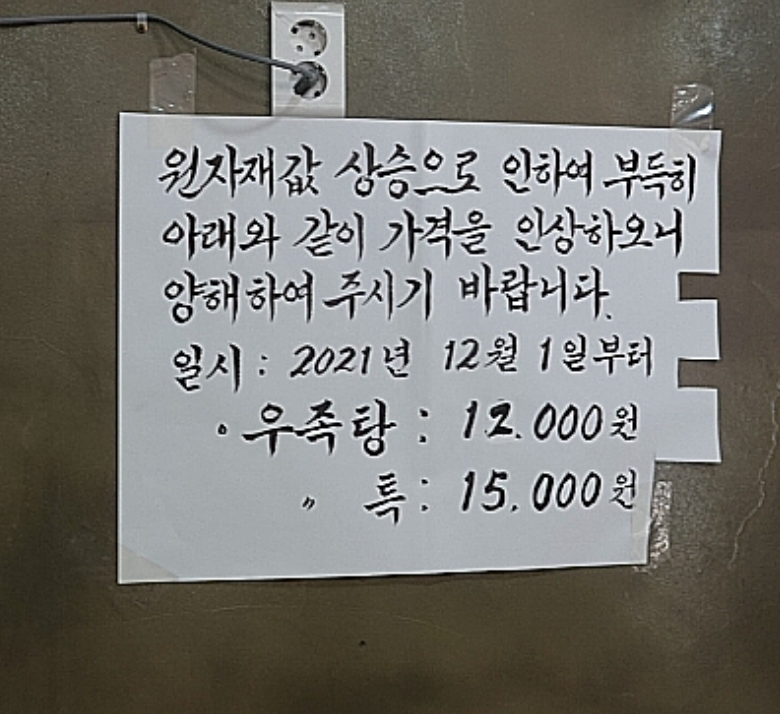 원자재값 상승으로 인하여 부득히
아래와 같이 가격을 인상하오니
양해하여 주시기 바랍니다.
일시 : 2021년 12월 1일부터
· 우족탕 : 12.000원
〃 특 : 15.000원